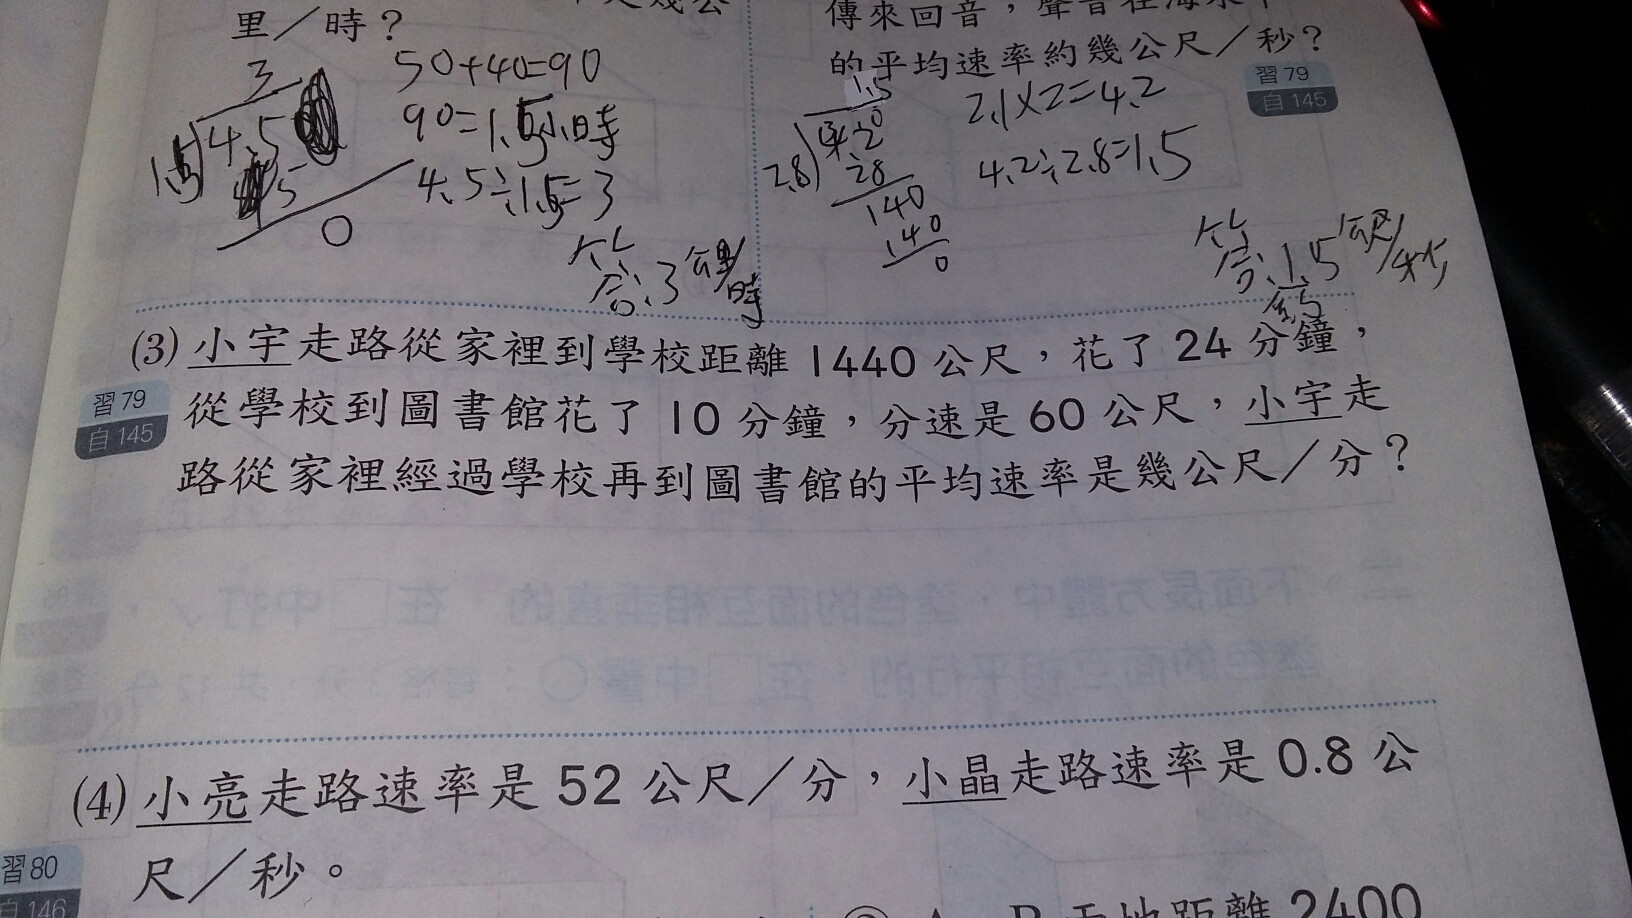 里／時？
50+40=90
90=1.5小時
4.5÷1.5=3
3
1.5 4.5
0
答:3公里/時
傳來回音，聲音在海水中
的平均速率約幾公尺／秒？
習79
自145
2.1×2=4.2
4.2÷2.8=1.5
1.5
2.8 4.2
28
140
140
0
答:1.5公尺/秒
(3) 小宇走路從家裡到學校距離1440公尺，花了24分鐘，
習79
自145
從學校到圖書館花了10分鐘，分速是60公尺，小宇走
路從家裡經過學校再到圖書館的平均速率是幾公尺／分？
(4) 小亮走路速率是52公尺／分，小晶走路速率是0.8公
尺／秒。
習80
自146
地距離2400